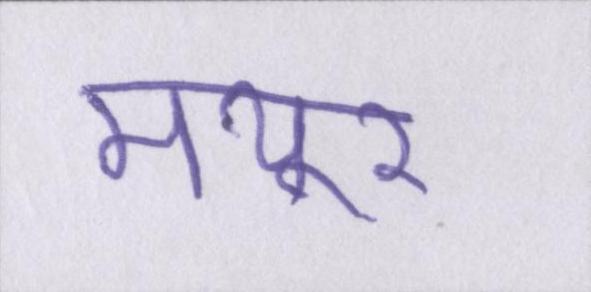 मयूर